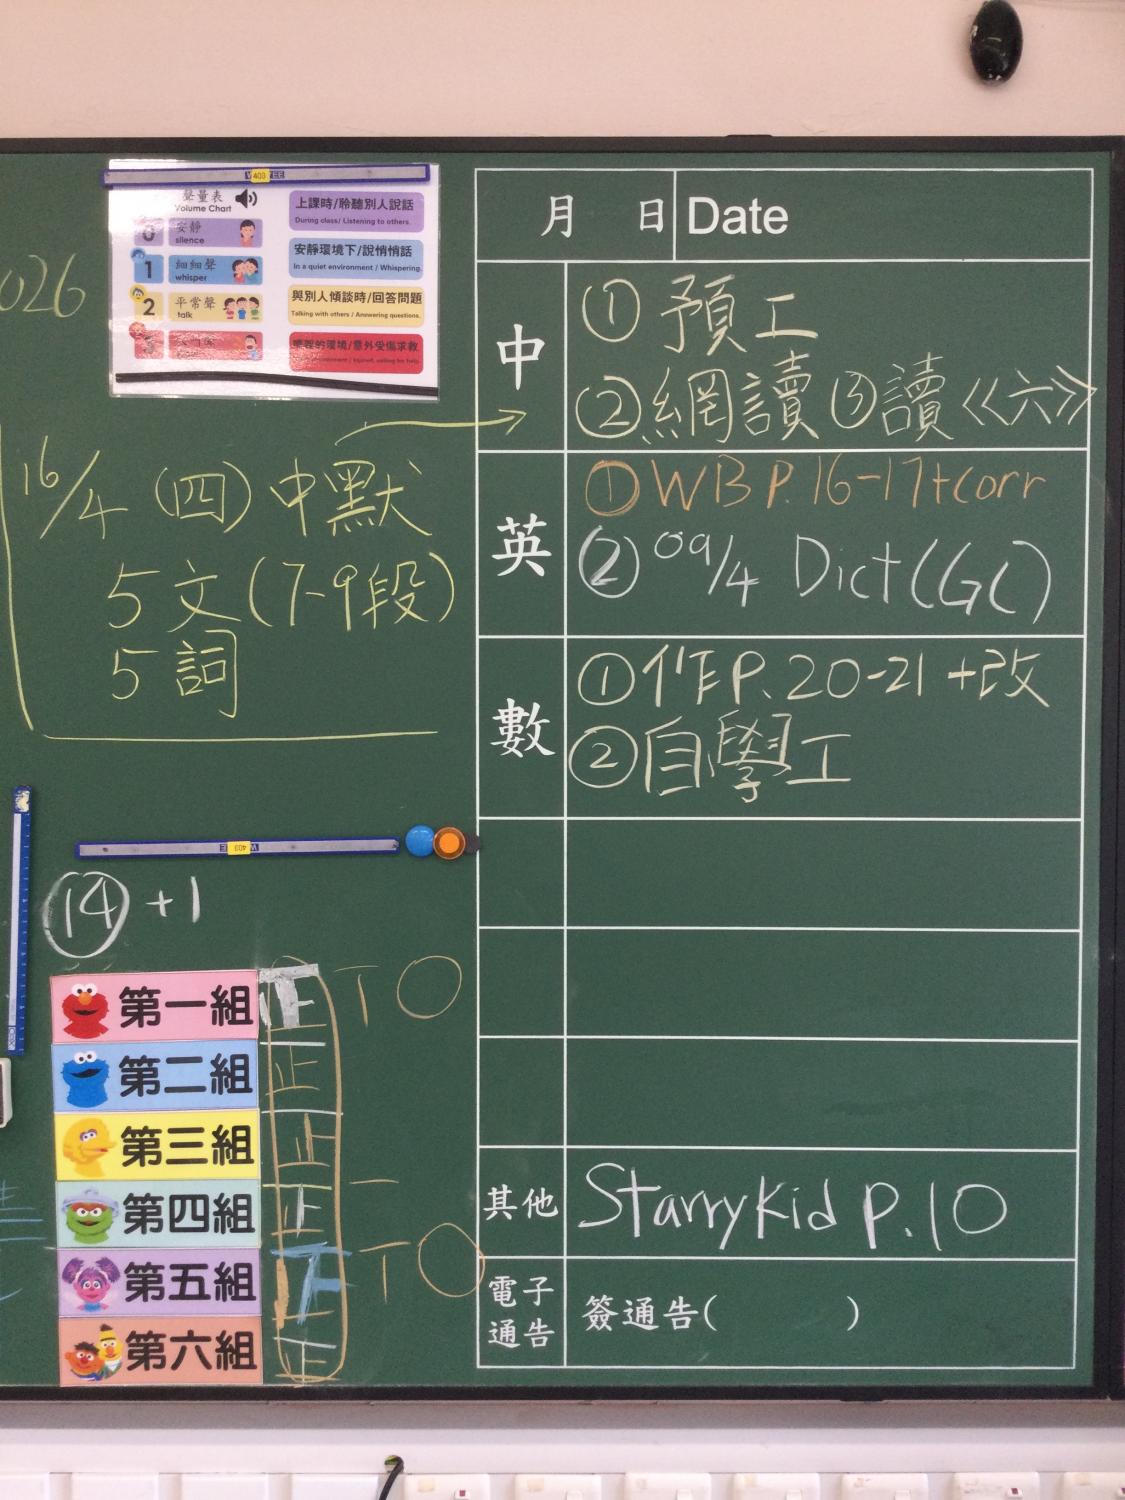 聲量表
Volume Chart
0 安靜
silence
1 細細聲
whisper
2 平常聲
talk
上課時/聆聽別人說話
During class/ Listening to others.
安靜環境下/說悄悄話
In a quiet environment / Whispering.
與別人傾談時/回答問題
Talking with others / Answering questions.
的環境/意外受傷求救
026
16/4 (四) 中默
5文(7-9段)
5詞
月 日 Date
中
①預工
②網讀 ③讀《六》
英
①WB P.16-17+corr
②09/4 Dict(GC)
數
①作P.20-21+改
②自學工
其他
StarryKid P.10
電子
通告
簽通告( )
403
14 +1
第一組
第二組
第三組
第四組
第五組
第六組